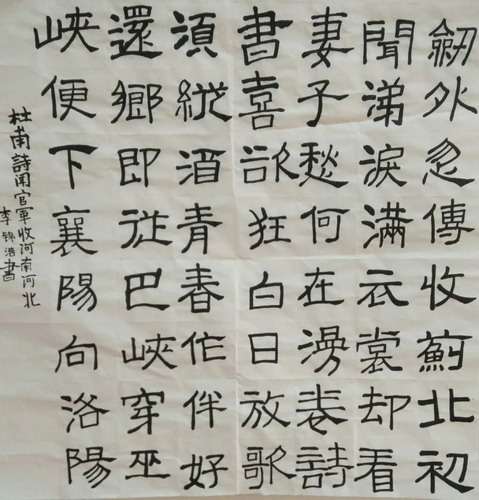 劒外忽傳收薊北初
聞涕淚滿衣裳却看
妻子愁何在漫卷詩
書喜欲狂白日放歌
須縱酒青春作伴好
還鄉即從巴峽穿巫
峽便下襄陽向洛陽
杜甫詩聞官軍收河南河北
李錦浩書